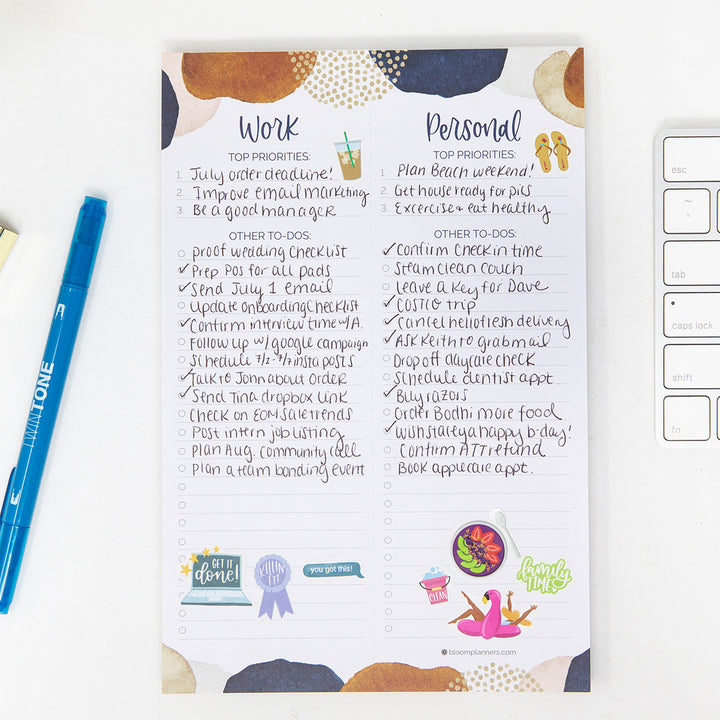 Work
TOP PRIORITIES:
1. July order deadline!
2. Improve email marketing
3. Be a good manager
OTHER TO-DOS:
proof wedding checklist
Prep POs for all pads
Send July 1 email
Update onboarding checklist
Confirm interview time w/A.
Follow up w/ google campaign
Schedule 7/2-7/7 insta posts
Talk to John about order
Send Tina dropbox link
Check on EOM sale trends
Post intern job listing
Plan Aug. community call
Plan a team bonding event
GET IT
done!
KILLIN'
IT!
you got this!
Personal
TOP PRIORITIES:
1. Plan Beach weekend!
2. Get house ready for pics
3. Excercise + eat healthy
OTHER TO-DOS:
Confirm Check in time
Steam clean couch
Leave a Key for Dave
COSTCO trip
Cancel hellofresh delivery
ASK Keith to grab mail
Drop off daycare check
Schedule dentist appt.
Buy razors
Order Bodhi more food
Wish stacey a happy b-day!
Confirm ATT refund
Book applecare appt.
CLEAN
family
TIME
bloomplanners.com
TWINTONE
esc
~
\`
tab
caps lock
shift
fn